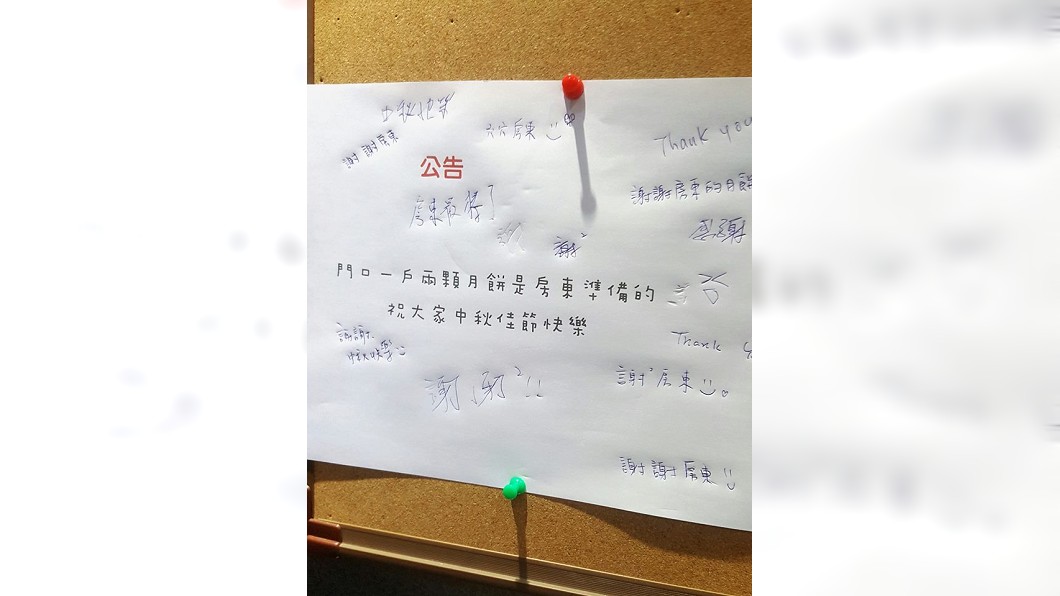 中秋快樂
謝謝房東
房東
Thank you
公告
謝謝房東的月餅
房東最棒了
感謝
謝²
門口一戶兩顆月餅是房東準備的
祝大家中秋佳節快樂
謝謝
Thank
謝²房東
謝謝²
謝謝房東